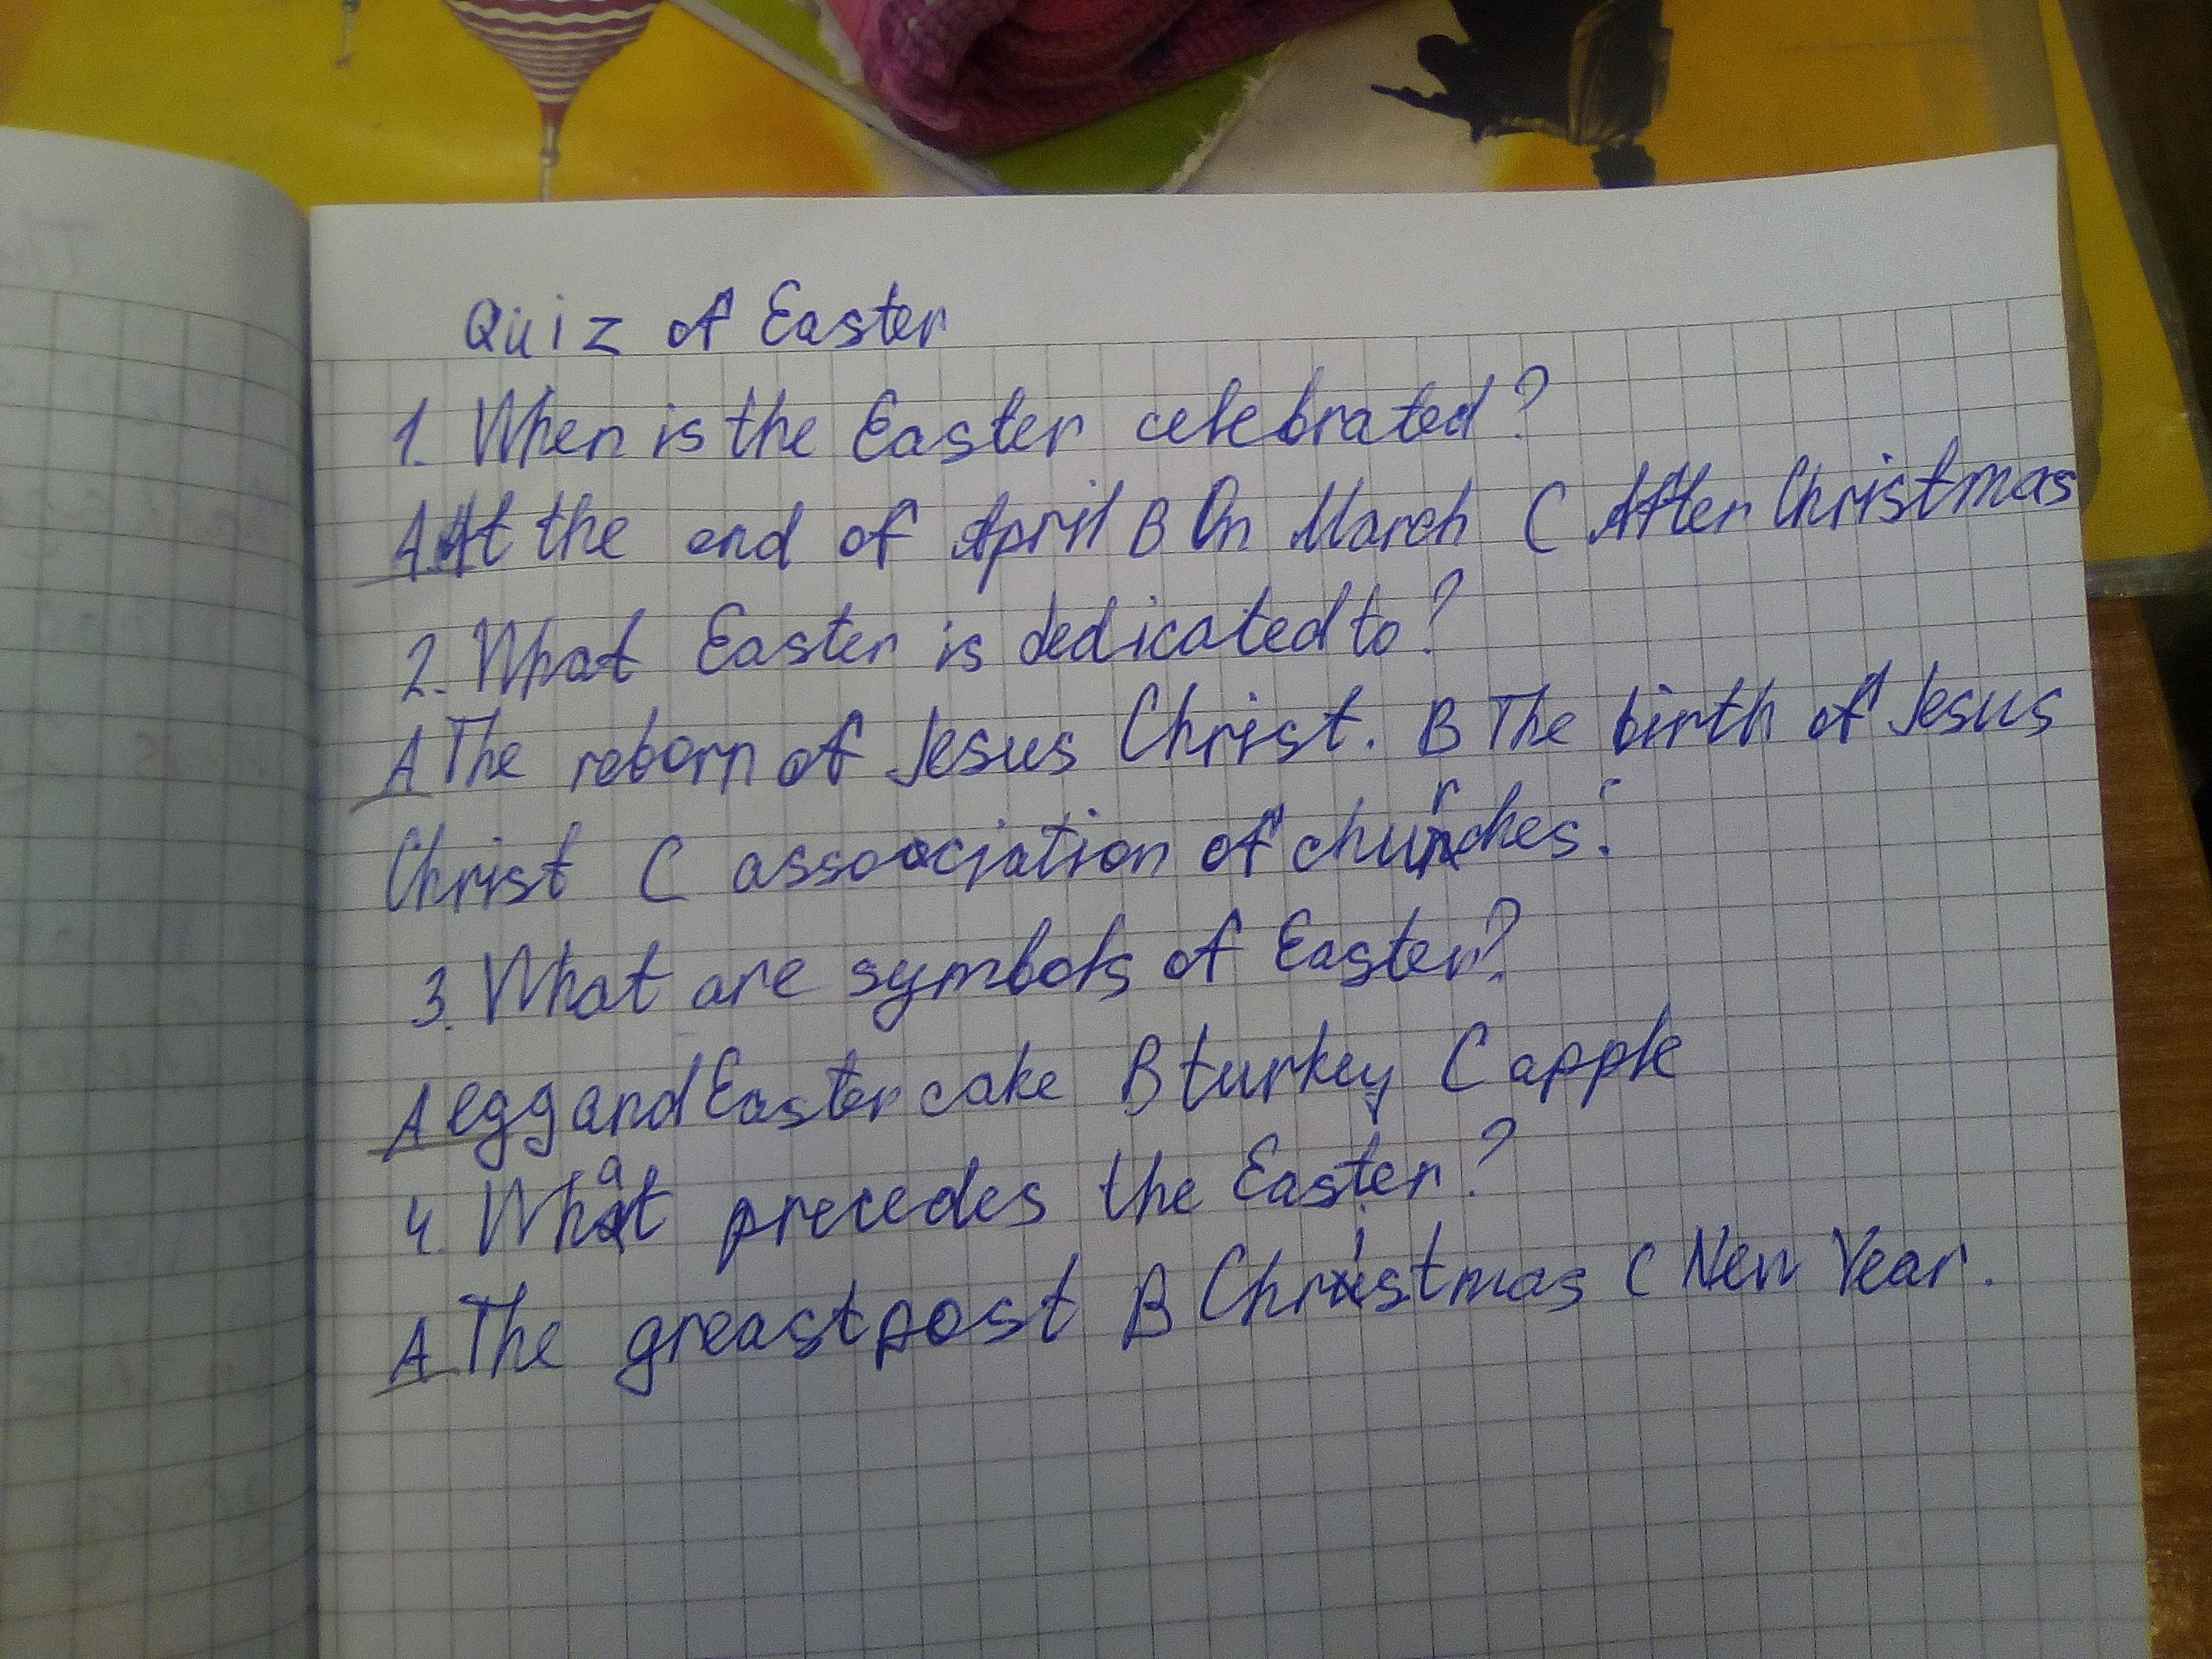 Quiz of Easter
1. When is the Easter celebrated?
A At the end of April B On March C After Christmas
2. What Easter is dedicated to?
A The reborn of Jesus Christ. B The birth of Jesus
Christ C assoociation of churches.
3. What are symbols of Easter?
A egg and Easter cake B turkey C apple
4. What precedes the Easter?
A The greast post B Christmas C New Year.